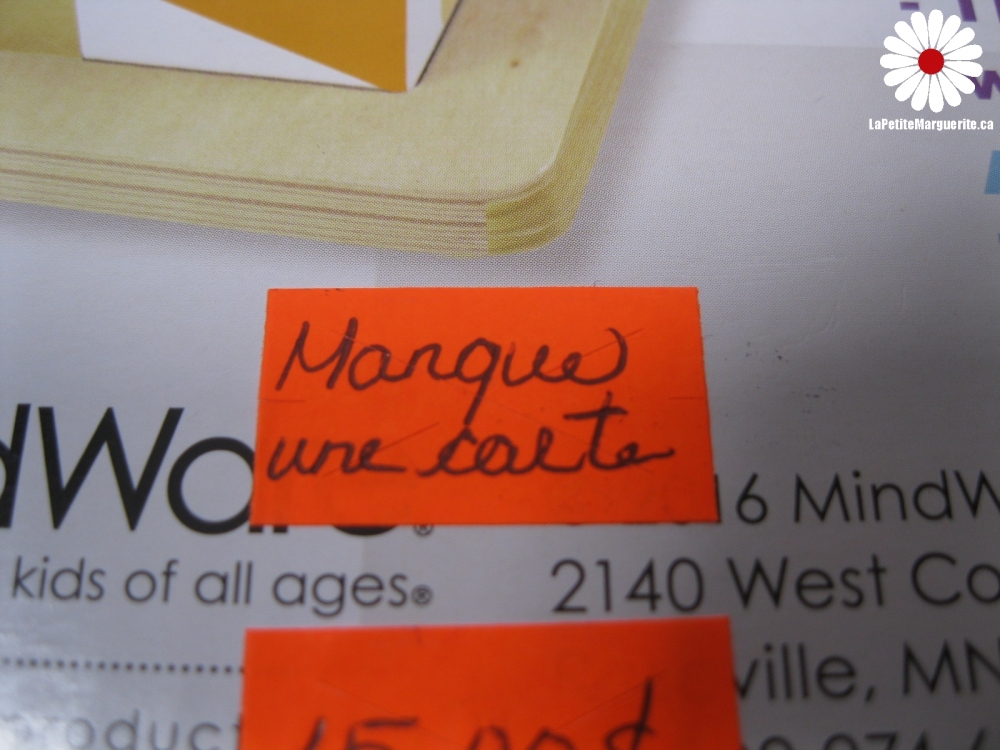 LaPetiteMarguerite.ca
Manque
une carte
dWare®
16 MindW
kids of all ages®
2140 West Co
ville, MN
product
15.00$